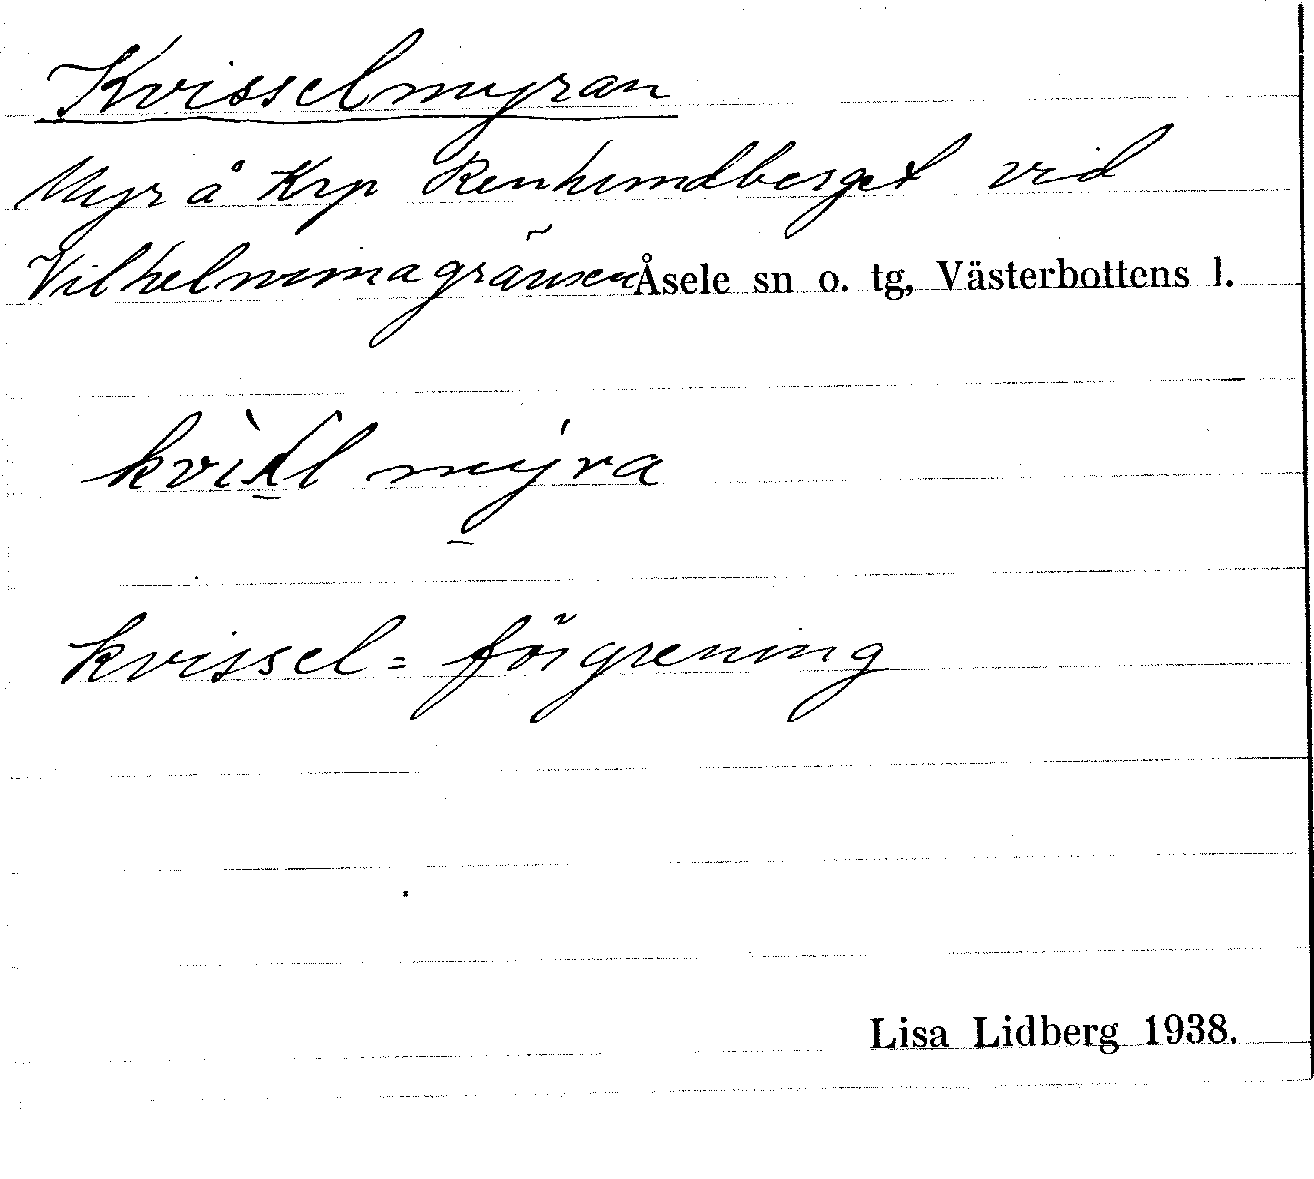 Kvisselmyran
Myr å Krp Renhundberget vid
Vilhelminagränsen Åsele sn o. tg, Västerbottens l.
mýra
kvissel = förgrening
Lisa Lidberg 1938.